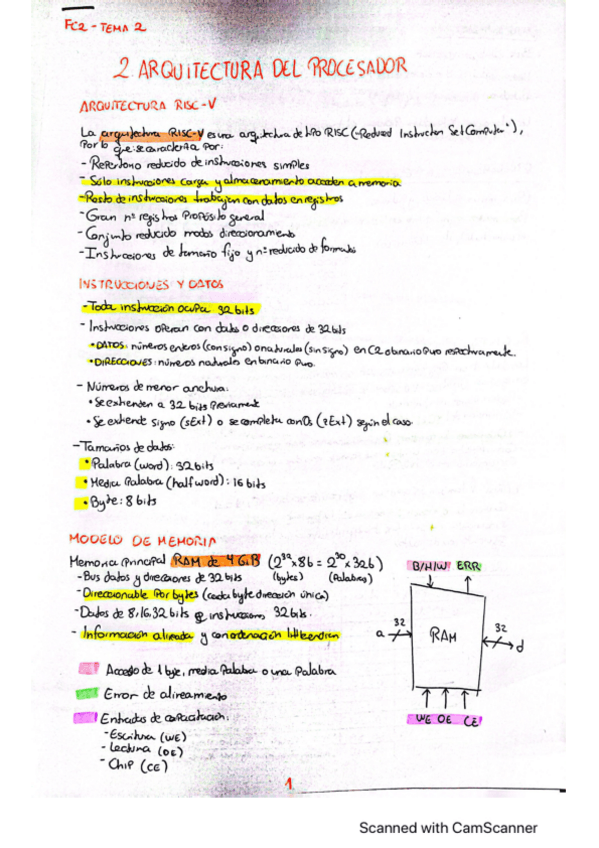 FC2 - TEMA 2
2 ARQUITECTURA DEL PROCESADOR
ARQUITECTURA RISC-V
La arquitectura RISC-V es una arquitectura de tipo RISC ("Reduced Instruction Set Computer"),
por lo que se caracteriza por:
- Repertorio reducido de instrucciones simples
- Sólo instrucciones carga y almacenamiento acceden a memoria
- Resto de instrucciones trabajan con datos en registros
- Gran nº registros propósito general
- Conjunto reducido modos direccionamiento
- Instrucciones de tamaño fijo y nº reducido de formatos
INSTRUCCIONES Y DATOS
- Toda instrucción ocupa 32 bits
- Instrucciones operan con datos o direcciones de 32 bits
• DATOS: números enteros (con signo) o naturales (sin signo) en C2 o binario puro respectivamente.
• DIRECCIONES: números naturales en binario puro.
- Números de menor anchura:
• Se extienden a 32 bits previamente
• Se extiende signo (sExt) o se completa con 0s (zExt) según el caso
- Tamaños de datos:
• Palabra (word): 32 bits
• Media palabra (half word): 16 bits
• Byte: 8 bits
MODELO DE MEMORIA
Memoria principal RAM de 4 GiB (2³²x8b = 2³⁰x32b)
(bytes) (palabras)
- Bus datos y direcciones de 32 bits
- Direccionable por bytes (cada byte dirección única)
- Datos de 8, 16, 32 bits e instrucciones 32 bits.
- Información alineada y con ordenación little endian
B/H/W ERR
32
a
RAM
32
d
WE OE CE
Acceso de 1 byte, media palabra o una palabra
Error de alineamiento
Entradas de capacitación:
- Escritura (WE)
- Lectura (OE)
- Chip (CE)
1
Scanned with CamScanner